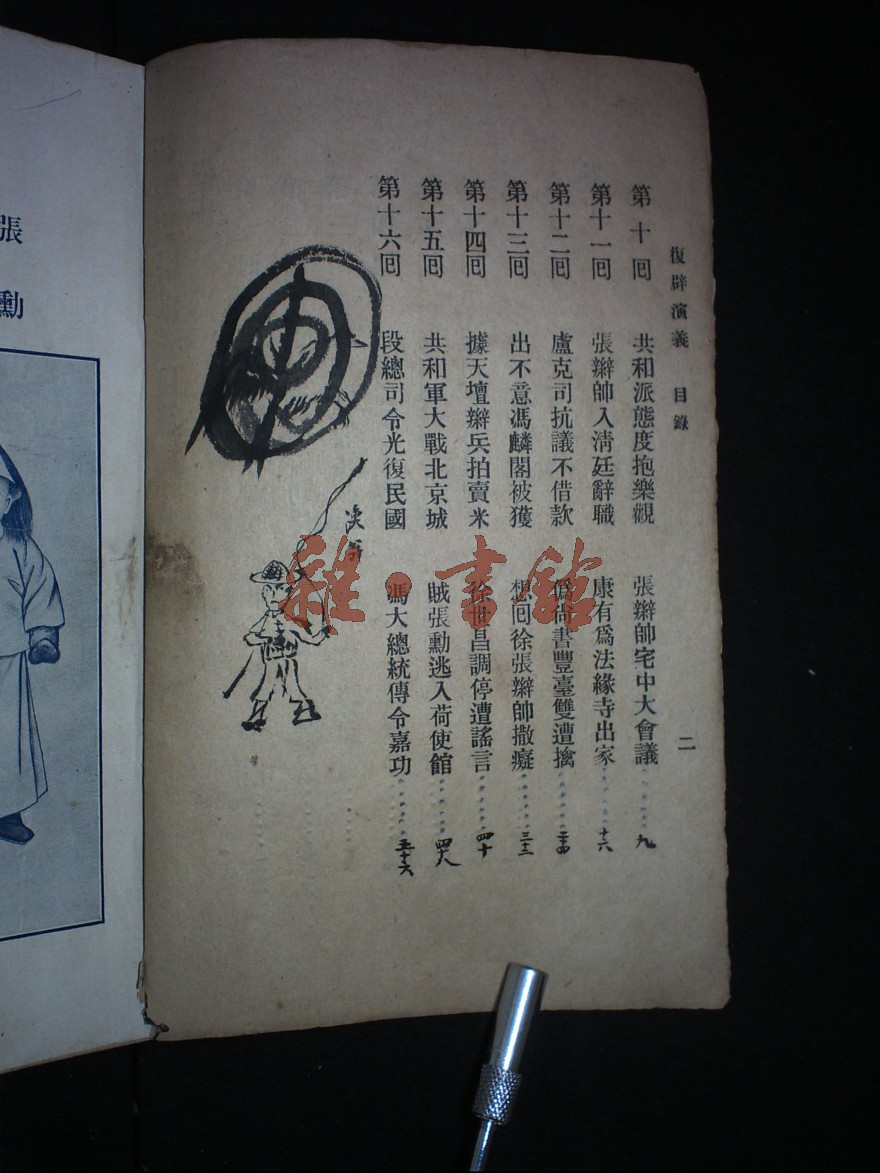 復辟演義　目錄　二
第十回　共和派態度抱樂觀　張辮帥宅中大會議　九
第十一回　張辮帥入清廷辭職　康有爲法緣寺出家　十六
第十二回　盧克司抗議不借款　偽尚書豐臺雙遭擒
第十三回　出不意馮麟閣被獲　想回徐張辮帥撒癡
第十四回　據天壇辮兵拍賣米　徐世昌調停遭謠言　四十
第十五回　共和軍大戰北京城　賊張勳逃入荷使館　四十八
第十六回　段總司令光復民國　馮大總統傳令嘉功　五十六
張勳
雜·書館